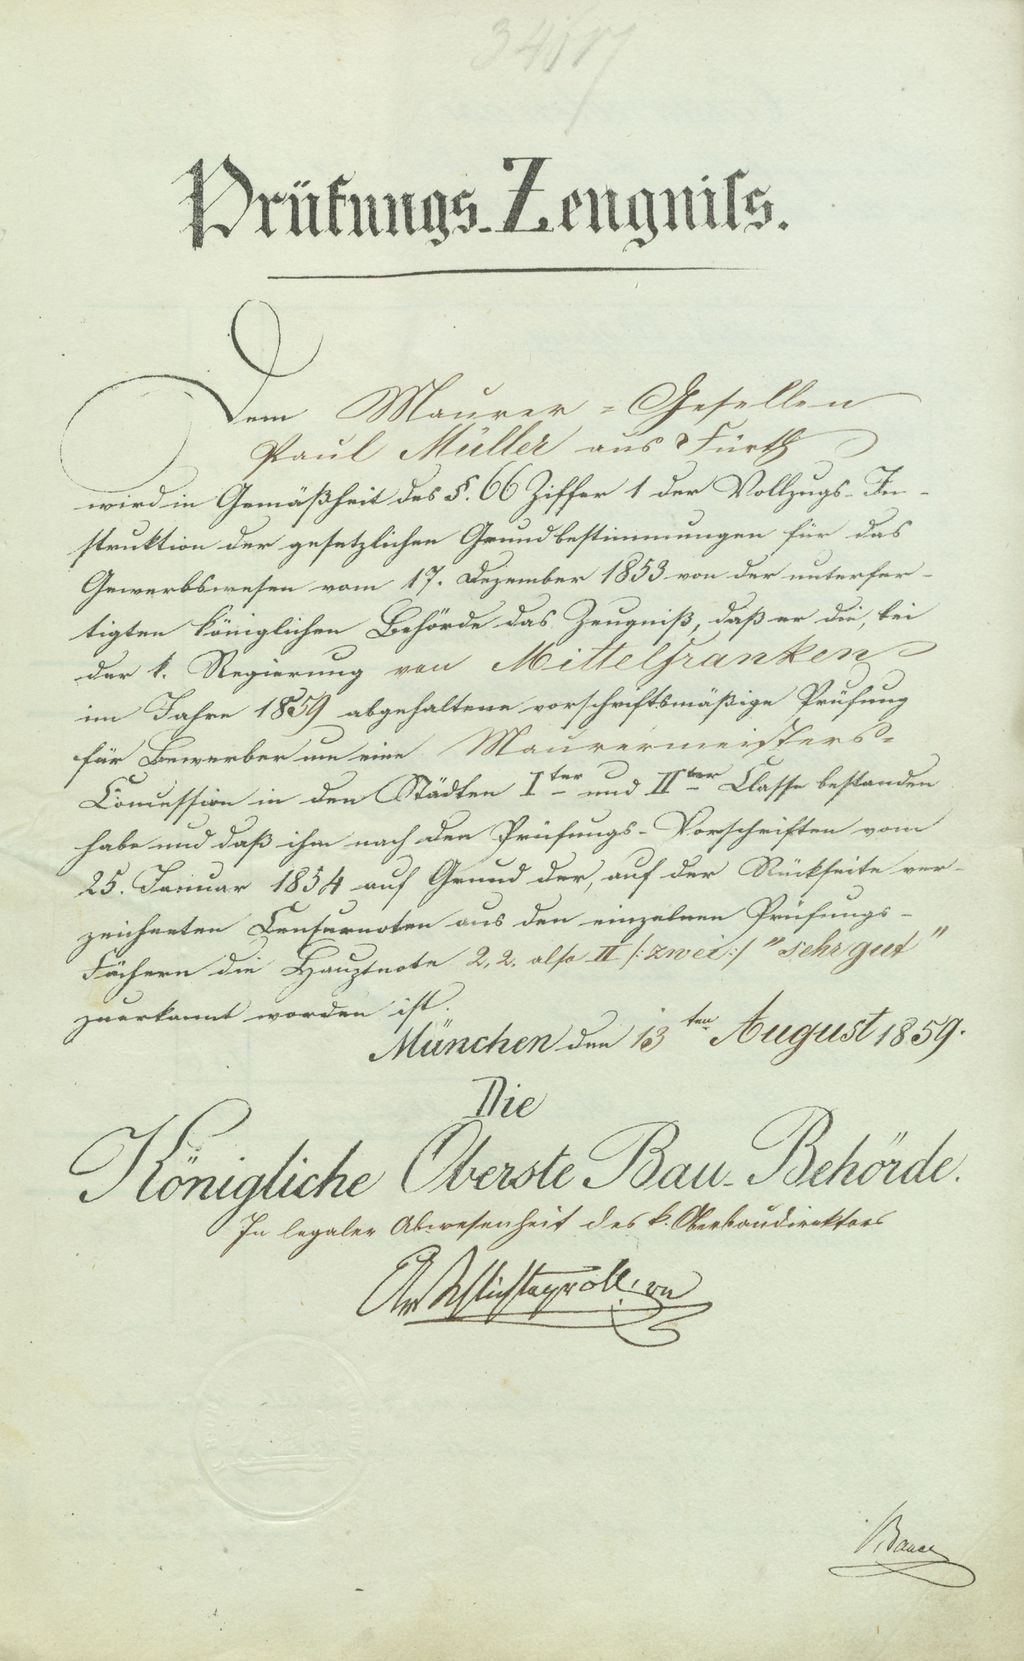 Prüfungs-Zeugniss.
Dem Maurer-Gesellen
Paul Müller aus Fürth
wird in Gemäßheit des §. 66 Ziffer 1 der Vollzugs-In-
struktion der gesetzlichen Grundbestimmungen für das
Gewerbswesen vom 17. Dezember 1853 von der unterfer-
tigten königlichen Behörde das Zeugniß, daß er die, bei
der k. Regierung von Mittelfranken
im Jahre 1859 abgehaltene vorschriftsmäßige Prüfung
für Bewerber um eine Maurermeisters-
Concession in den Städten Iter und IIter Classe bestanden
habe und daß ihm nach den Prüfungs-Vorschriften vom
25. Januar 1854 auf Grund der, auf der Rückseite ver-
zeichneten Censurnoten aus den einzelnen Prüfungs-
Fächern die Hauptnote 2,2. also II /:zwei:/ "sehr gut"
zuerkannt worden ist.
München den 13ten August 1859.
Die
Königliche Oberste Bau-Behörde.
In legaler Abwesenheit des k. Oberbaudirektors